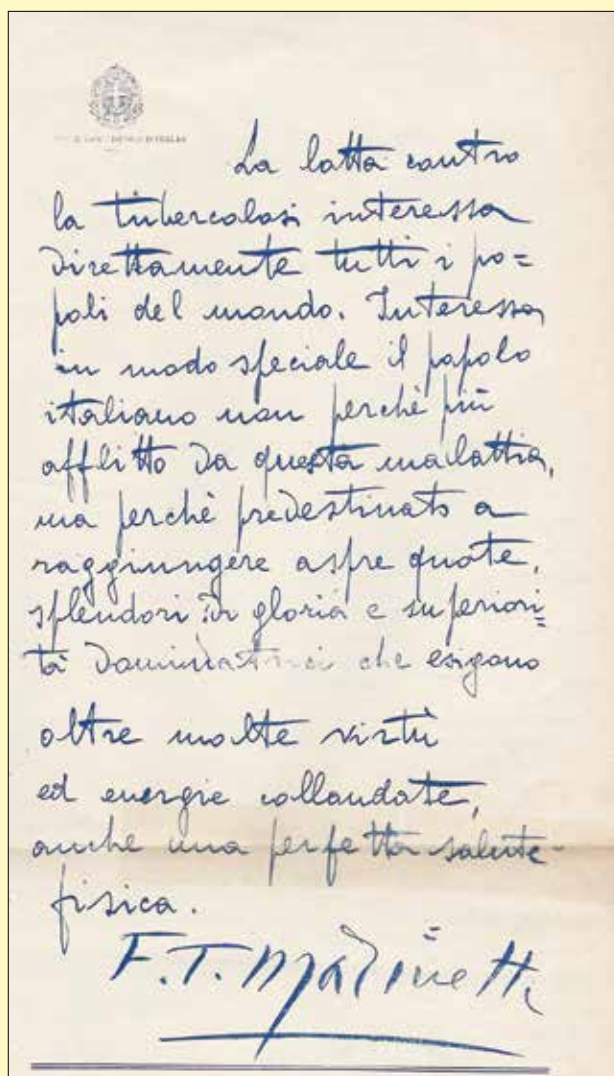 La lotta contro
la tubercolosi interessa
direttamente tutti i po=
poli del mondo. Interessa
in modo speciale il popolo
italiano non perchè più
afflitto da questa malattia,
ma perchè predestinato a
raggiungere aspre quote,
splendori di gloria e superiori=
tà dominatrici che esigono
oltre molte virtù
ed energie collaudate,
anche una perfetta salute
fisica.
F. T. Marinetti